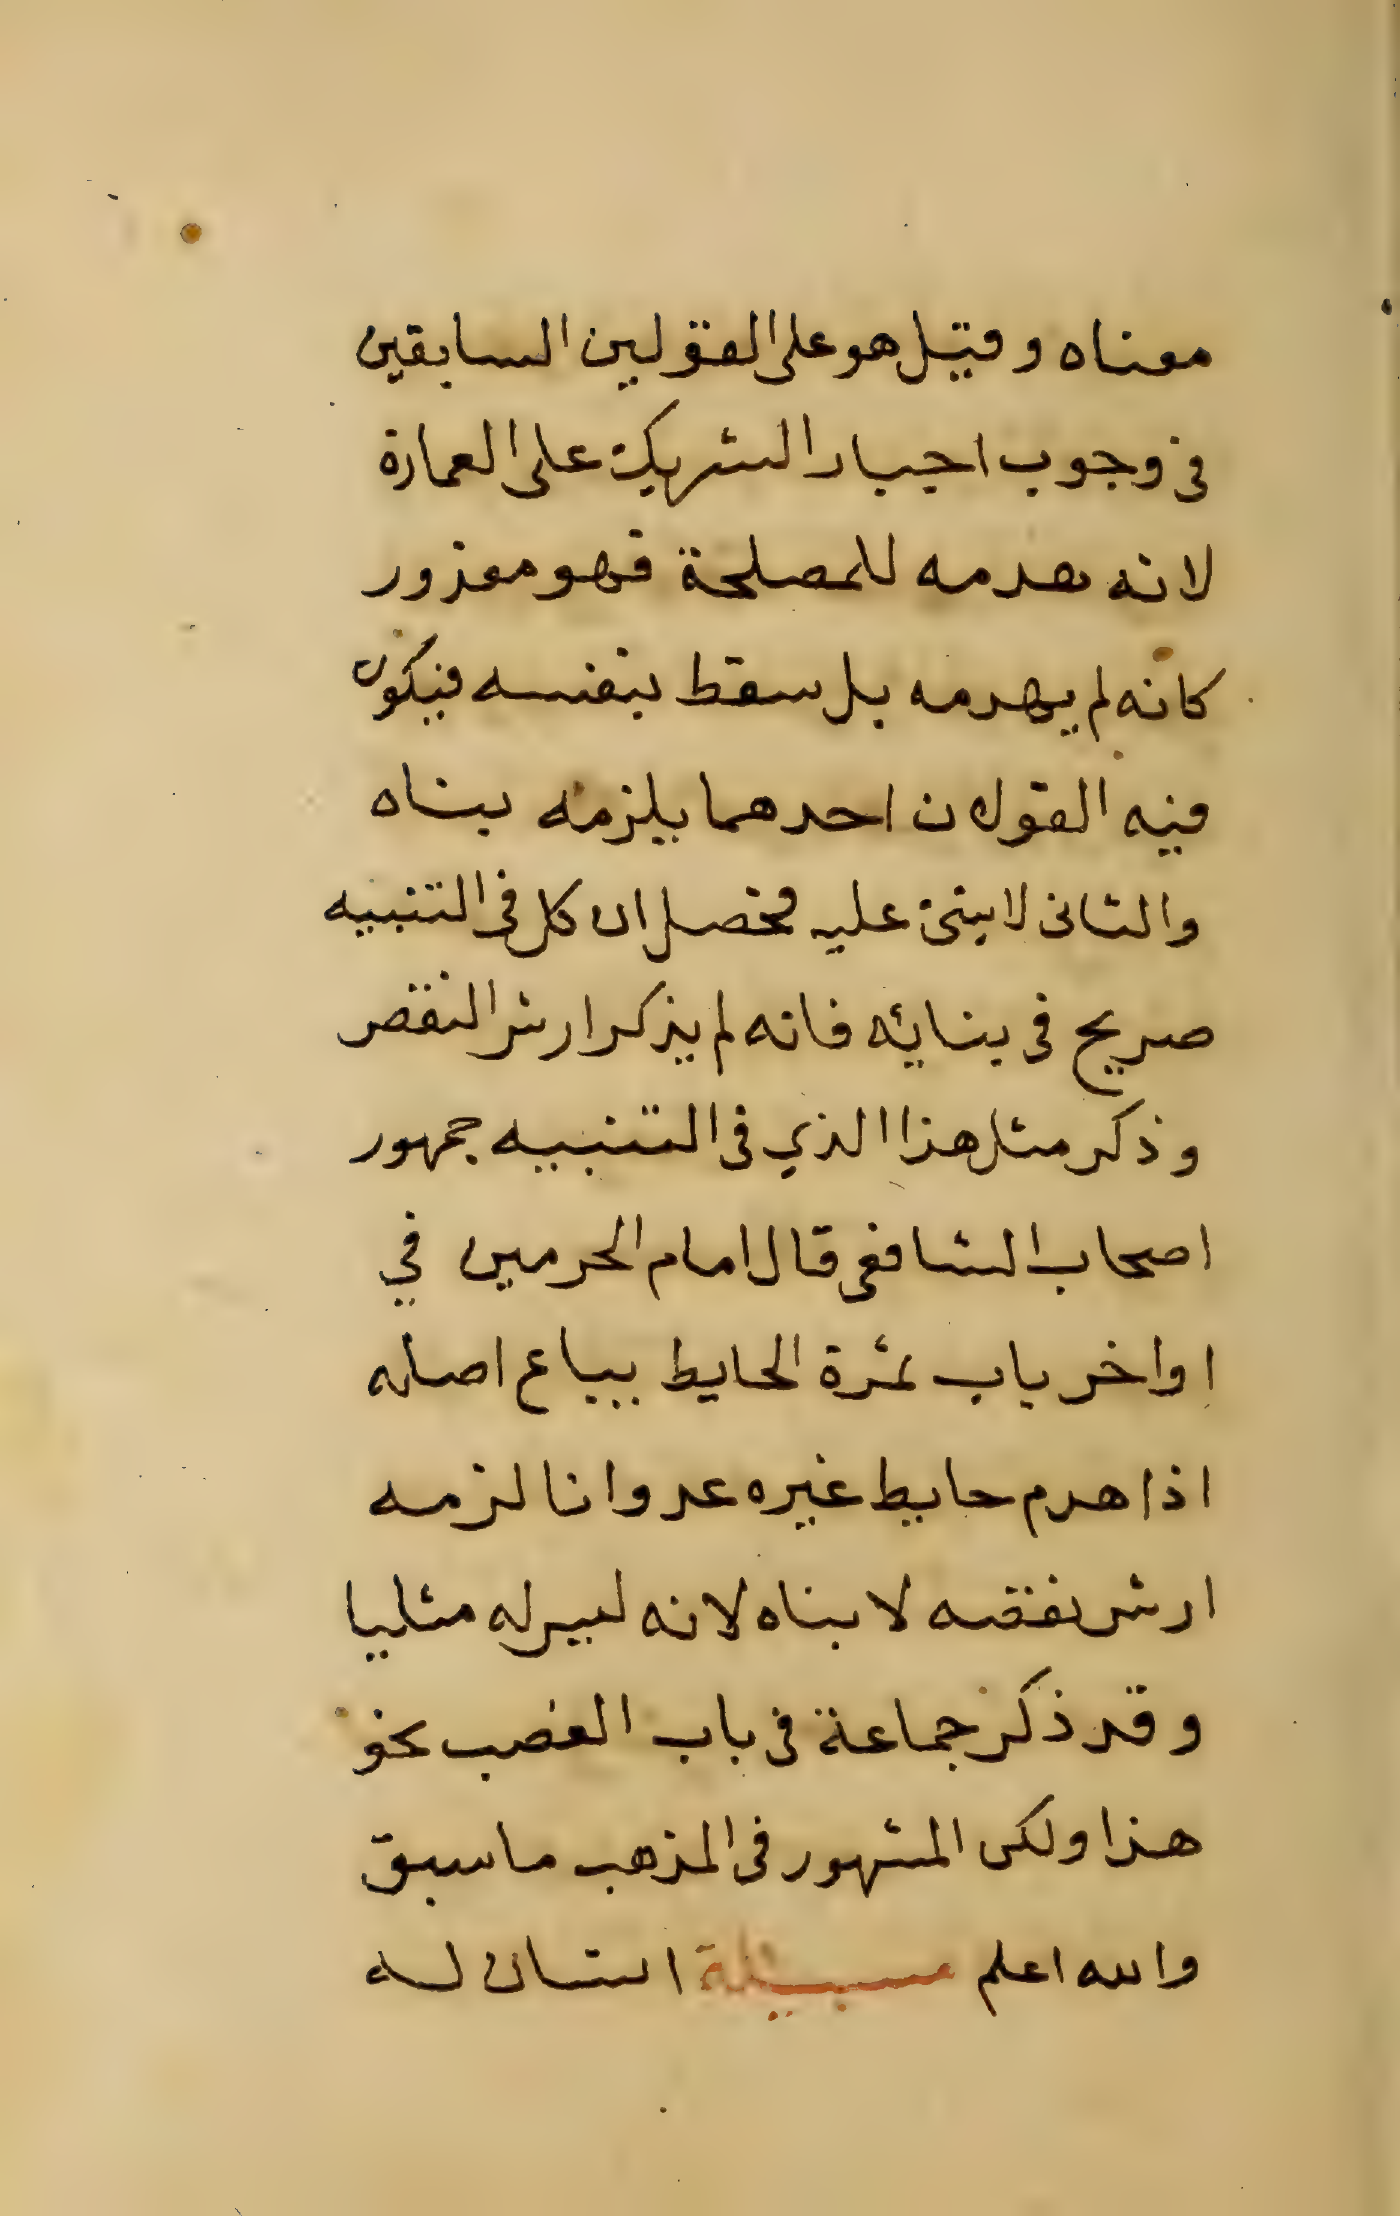 معناه وقيل هو على القولين السابقين
فى وجوب اجبار الشريك على العمارة
لانه هدمه للمصلحة فهو معذور
كانه لم يهدمه بل سقط بنفسه فيكون
فيه القولان احدهما يلزمه بناه
والثانى لا ينبى عليه فحصل ان كل فى التنبيه
صريح فى بنايئه فانه لم يذكر ارش النقص
وذكر مثل هذا الذي فى التنبيه جمهور
اصحاب الشافعى قال امام الحرمين في
اواخر باب ثمرة الحايط يباع اصله
اذا هدم حايط غيره عدوانا لزمه
ارش نقضه لا بناه لانه ليس له مثليا
وقد ذكر جماعة فى باب الغصب نحو
هذا ولكن المشهور فى المذهب ما سبق
والله اعلم مسيئلة انسان له